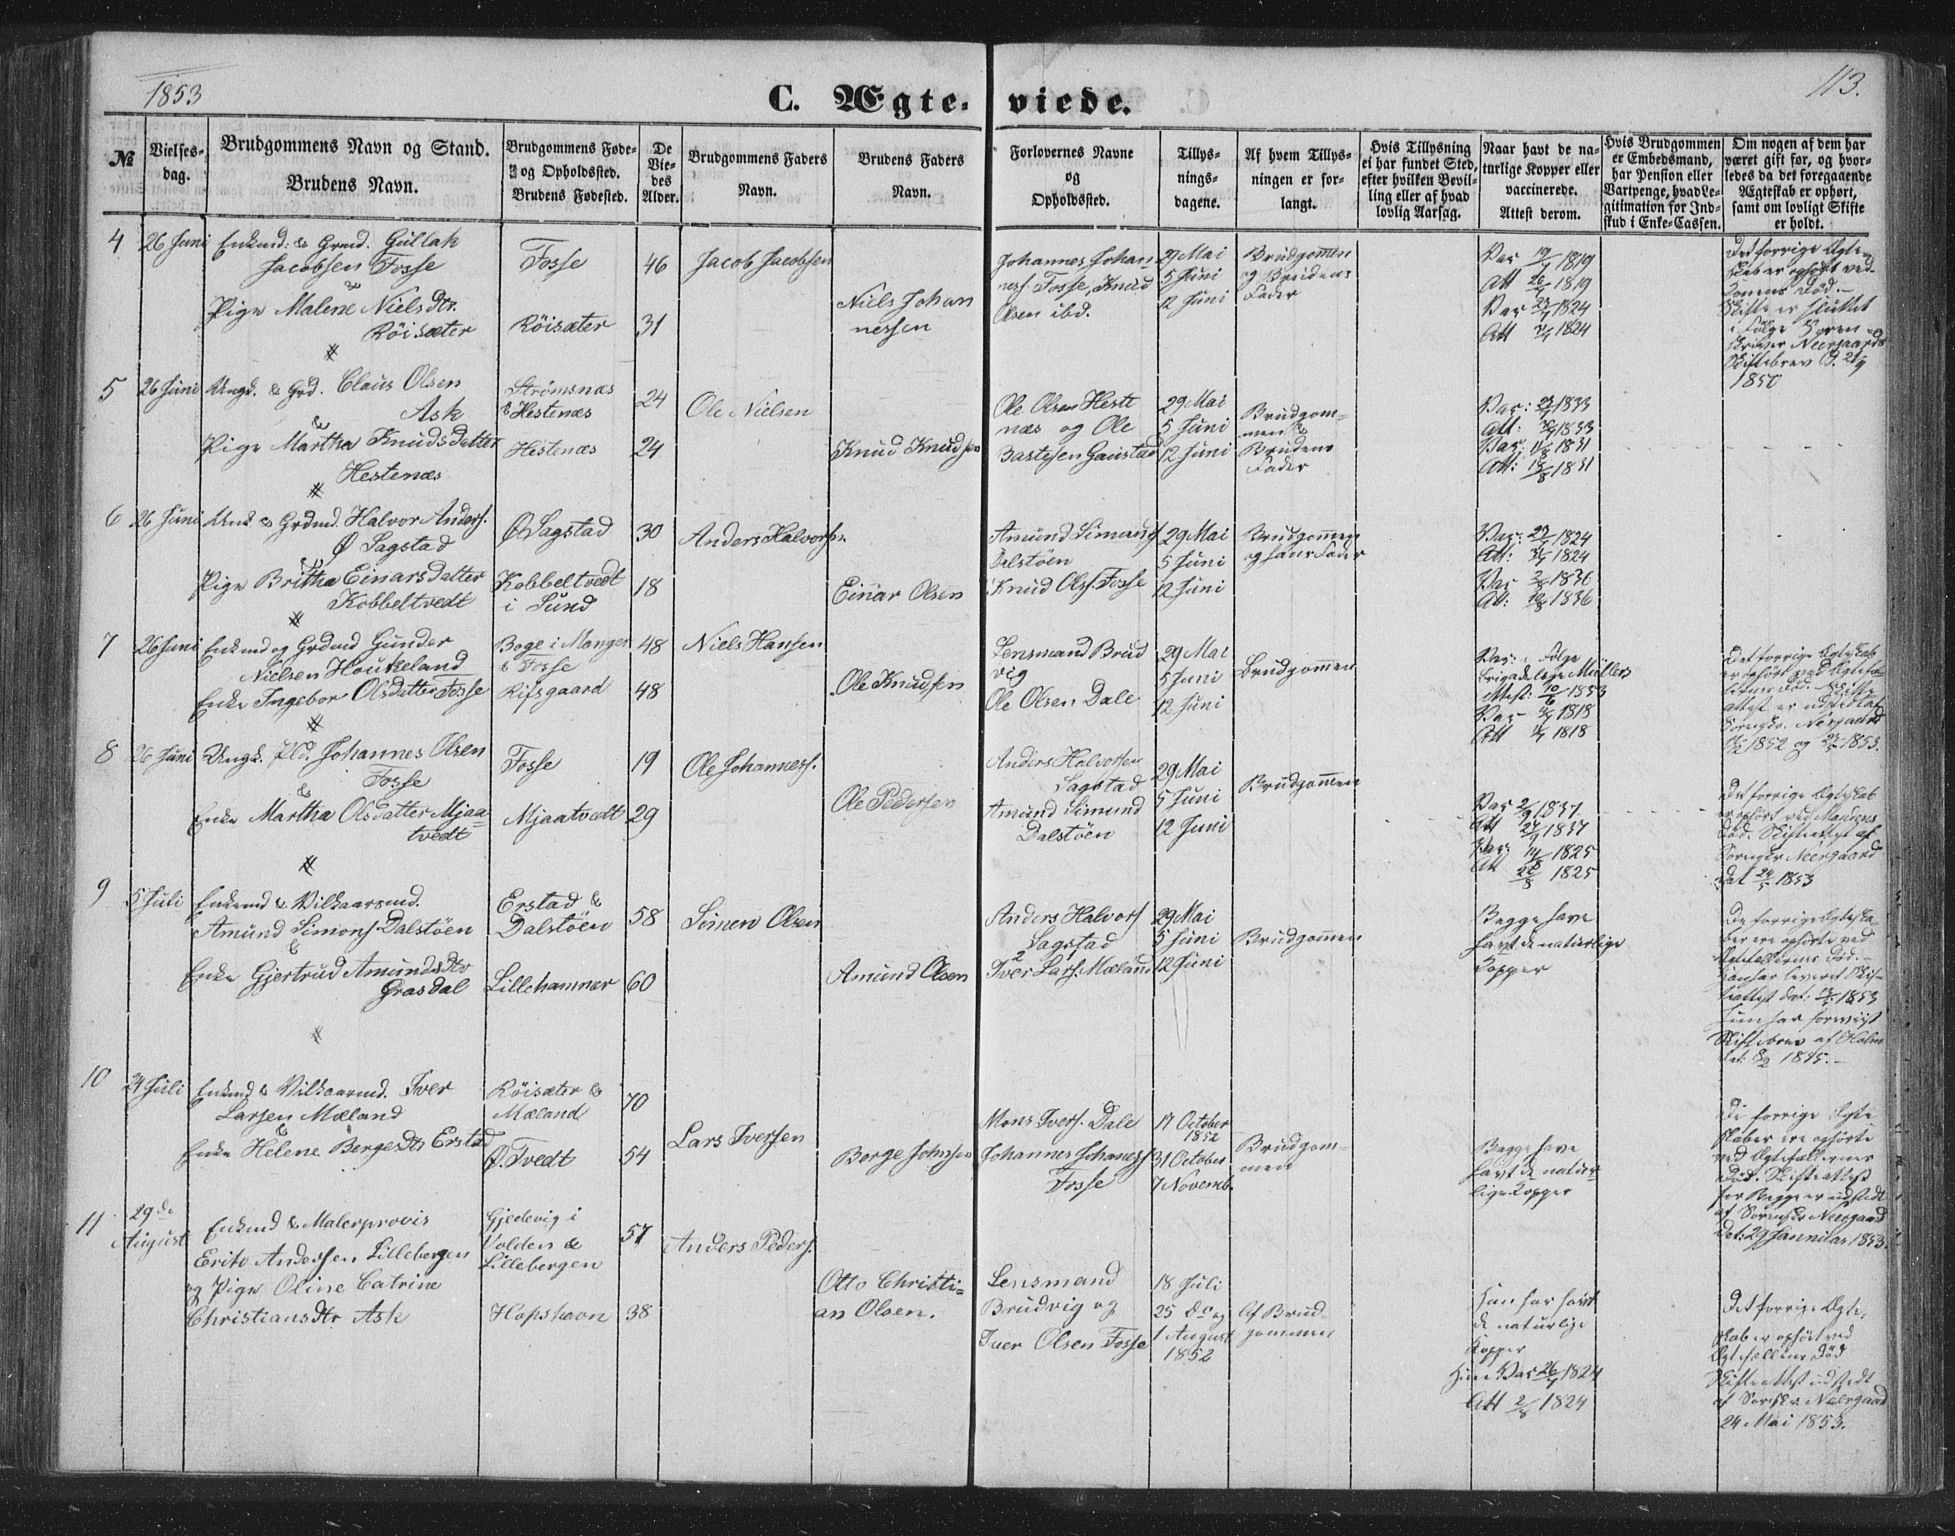 1853
C. Ægteviede.
113.
№
Vielsesdag.
Brudgommens Navn og Stand.
Brudens Navn.
Brudgommens Føde- og Opholdssted.
Brudens Fødested.
De Viedes Alder.
Brudgommens Faders Navn.
Brudens Faders Navn.
Forlovernes Navne og Opholdssted.
Tillysningsdagene.
Af hvem Tillysningen er forlangt.
Hvis Tillysning ei har fundet Sted, efter hvilken Bevilling eller af hvad lovlig Aarsag.
Naar havt de naturlige Kopper eller vaccinerede.
Attest derom.
Hvis Brudgommen er Embedsmand, har Pension eller Vartpenge, hvad Legitimation for Indskud i Enke-Cassen.
Om nogen af dem har været gift før, og hvorledes da det foregaaende Ægteskab er ophørt, samt om lovligt Skifte er holdt.
4 26 Juni Enkemd: & Grmd. Gullak
Jacobsen Fosse
&
Pige Malene Nielsdtr.
Röisæter
Fosse
Röisæter
46
31
Jacob Jacobsen
Niels Johan
nessen
Johannes Johan
nes. Fosse, Knud
Olsen ibd.
29 Mai
5 Juni
12 Juni
Brudgommen
og Brudens
Fader
Vac 1819
Att 1819
Vac 1824
Att 1824
Det forrige Ægte-
skab er ophørt ved
Konens Død.
Skifte er sluttet
i Følge Soren-
skriver Neergaards
Skiftebrev
1850
5 26 Juni Ungk. & Grd. Claus Olsen
Ask
&
Pige Martha Knudsdatter
Hestenæs
Strømsnæs
& Hestenæs
Hestenæs
24
24
Ole Nielsen
Knud Knudsen
Ole Olsen Heste
næs og Ole
Bastesen Gaustad
29 Mai
5 Juni
12 Juni
Brudgom-
men &
Brudens
Fader
Vac: 1833
Att: 1833
Vac: 1831
Att: 1831
6 26 Juni Unk & Grdmd. Halvor Anders.
Ø Sagstad
&
Pige Britha Einarsdatter
Kobbeltvedt
Ø Sagstad
Kobbeltvedt
i Sund
30
18
Anders Halvorsen
Einar Olsen
Amund Simons.
Dalstöen
Knud Ols. Fosse
29 Mai
5 Juni
12 Juni
Brudgommen
og hans Fader
Vac: 1824
Att: 1824
Vac 1836
Att: 1836
7 26 Juni Enkemd og Grdmd Gunder
Nielsen Houkeland
Enke Ingebor Olsdatter Fosse
Boge i Manger
& Fosse
Risgaard
48
48
Niels Hansen
Ole Knudsen
Lensmand Brud
vig
Ole Olsen Dale
29 Mai
5 Juni
12 Juni
Brudgommen
Vac: i Følge
Brigadelæge Müllers
Attest: 10/6 1853
Vac 1818
Att 1818
Det forrige Ægteskab
er ophørt ved
Død. Skifte
attest er udstedt af
Sorenskr. Neergaard
1852 og 1853.
8 26 Juni Ungk. Johannes Olsen
Fosse
&
Enke Martha Olsdatter Mjaa-
tvedt
Fosse
Mjaatvedt
19
29
Ole Johanness.
Ole Pedersen
Anders Halvorsen
Sagstad
Amund Simund
Dalstöen
29 Mai
5 Juni
12 Juni
Brudgommen
Vac 1837
Att 1837
Vac: 1825
Att 1825
Det forrige Ægteskab
er ophørt ved Mandens
Død. Skifteattest af
Sorenskr Neergaard
dat 1853
9 5 Juli Enkemd & Vilkaarsmd.
Amund Simons. Dalstöen
&
Enke Gjertrud Amundsdtr
Grasdal
Erstad &
Dalstöen
Lillehammer
58
60
Simen Olsen
Amund Olsen
Anders Halvors
Sagstad
Iver Lars. Mæland
29 Mai
5 Juni
12 Juni
Brudgommen
Begge have
havt de naturlige
Kopper
De forrige Ægteska-
ber ere ophørte ved
Ægtefællernes Død.
Han har leveret Skif-
teattest dat: 1853
Hun har foreviist
Skiftebrev af Holm
dat: 1845.
10 24 Juli Enkemd & Vilkaarsmd. Iver
Larsen Mæland
&
Enke Helene Borgesdtr Erstad
Röisæter &
Mæland
Ø. Tvedt
70
54
Lars Iversen
Borge Johnsen
Mons Ivers. Dale
Johannes Johaness
Fosse
17 October
1852
31 October
7 Novemb.
Brudgom-
men
Begge have
havt de natur-
lige Kopper
De forrige Ægte
skaber ere ophørte
ved Ægtefællernes
Død. Skifteattest
for Begge er udstedt
af Sorenskr Neergaard
dat: 29 Januar 1853.
11 29de
August
Enkemd & Malerprovis
Erik Anderssen Lillebergen
og Pige Oline Catrine
Christiansdtr Ask
Gjedevig i
Volden &
Lillebergen
Hopshavn
57
38
Anders Peders.
Otto Christi-
an Olsen.
Lensmand
Brudvig og
Iver Olsen Fosse
18 Juli
25 Do og
1 August
1852
Af Brud-
gommen
Han har havt
de naturlige
Kopper
Hun Vac 26/7 1824
Att 2/8 1824
Det forrige Ægte-
skab er ophørt ved
Ægtefællens Død
Skifteattest udstedt
af Sorskr. Neergaard
24 Mai 1853.